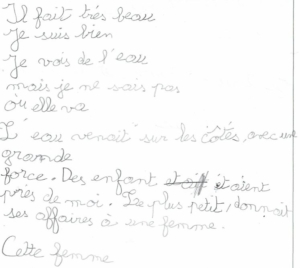 Il fait très beau
Je suis bien
Je vois de l'eau
mais je ne sais pas
où elle va
L'eau venait sur les côtés, avec une
grande
force. Des enfant étaient
près de moi. Le plus petit, donnait
ses affaires à une femme.
Cette femme